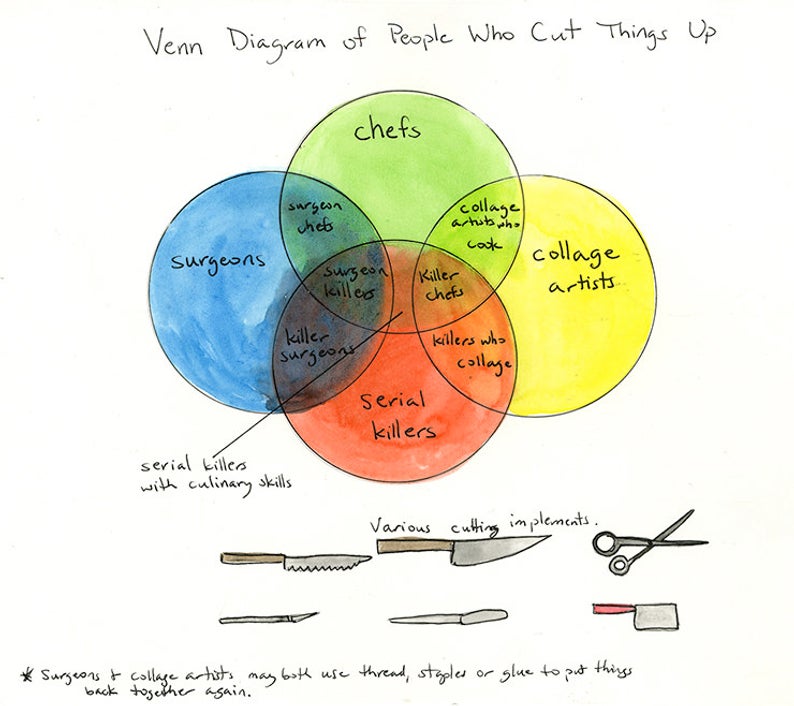 Venn Diagram of People Who Cut Things Up
chefs
surgeon
chefs
collage
artists who
cook
surgeons
collage
artists
surgeon
killers
Killer
chefs
killer
surgeons
killers who
collage
serial
killers
serial killers
with culinary skills
Various cutting implements.
* Surgeons & collage artists may both use thread, staples or glue to put things
back together again.